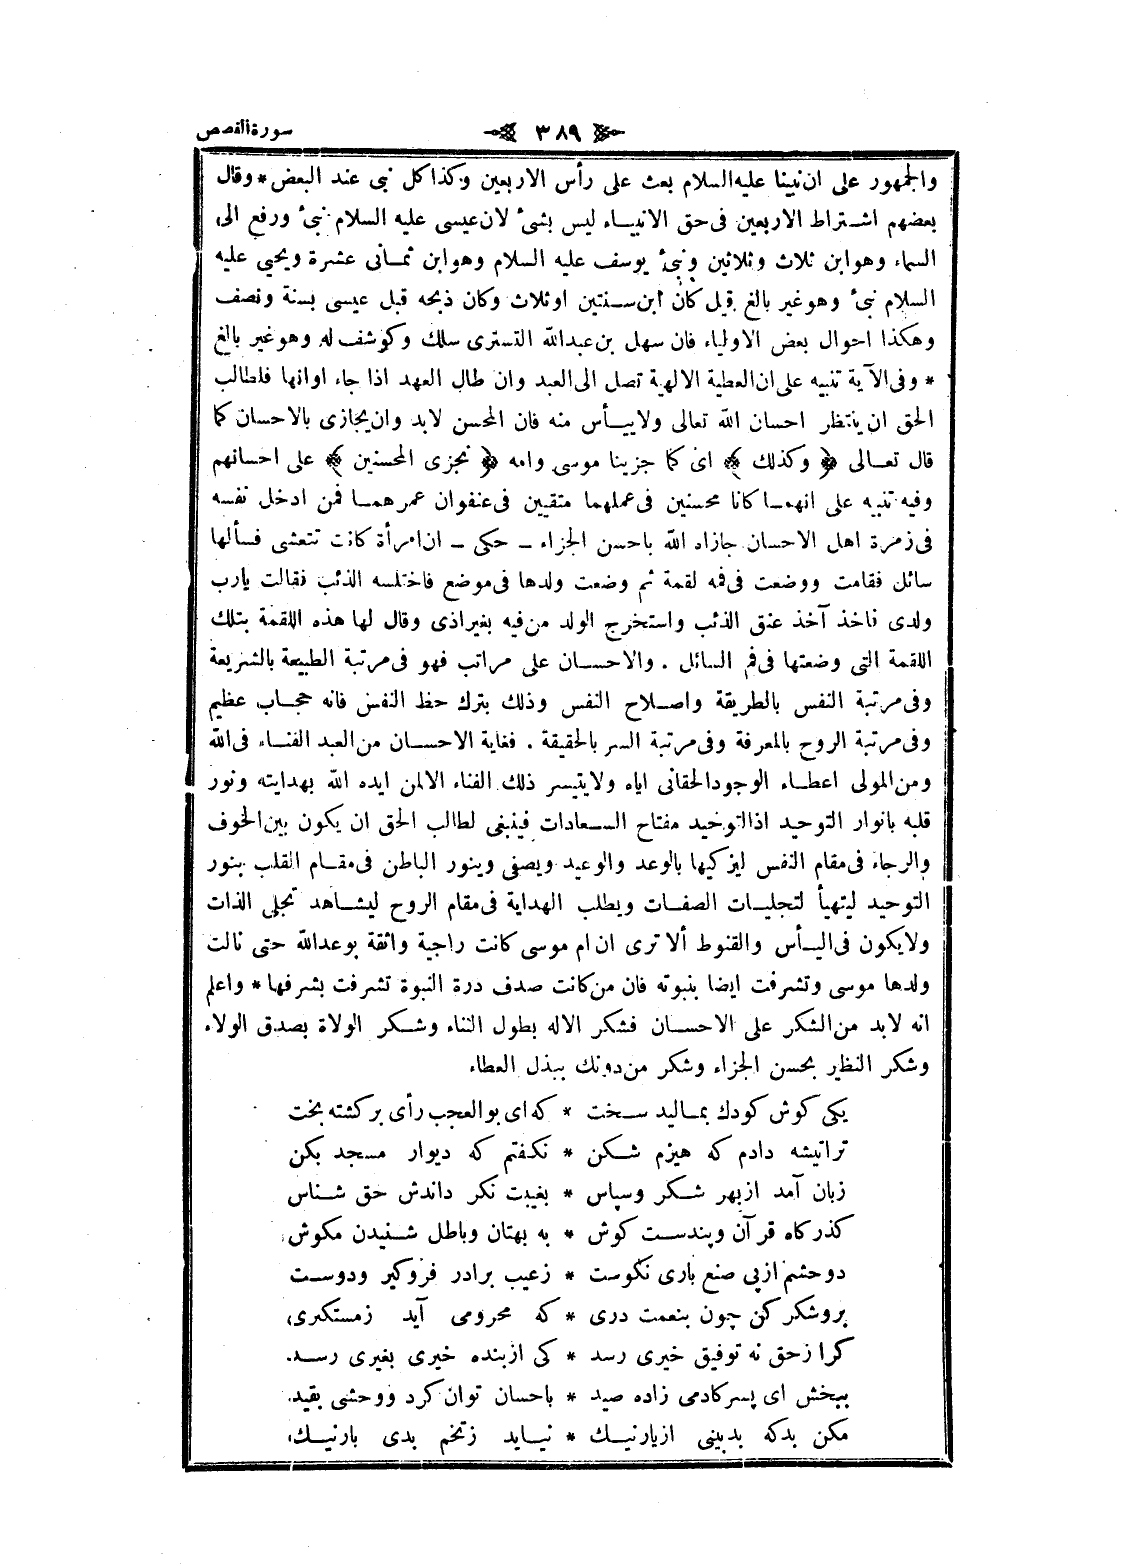 سورة القصص
٣٨٩
والجمهور على ان نبينا عليه السلام بعث على رأس الاربعين وكذا كل نبى عند البعض * وقال
بعضهم اشتراط الاربعين فى حق الانبياء ليس بشئ لان عيسى عليه السلام نبئ ورفع الى
السماء وهو ابن ثلاث وثلاثين ونبئ يوسف عليه السلام وهو ابن ثمانى عشرة ويحيى عليه
السلام نبئ وهو غير بالغ قيل كان ابن سنتين او ثلاث وكان ذبحه قبل عيسى بسنة ونصف
وهكذا احوال بعض الاولياء فان سهل بن عبدالله التسترى سلك وكوشف له وهو غير بالغ
* وفى الآية تنبيه على ان العطية الالهية تصل الى العبد وان طال العهد اذا جاء اوانها فلطالب
الحق ان ينتظر احسان الله تعالى ولا ييأس منه فان المحسن لابد وان يجازى بالاحسان كما
قال تعالى ﴿ وكذلك ﴾ اى كما جزينا موسى وامه ﴿ نجزى المحسنين ﴾ على احسانهم
وفيه تنبيه على انهما كانا محسنين فى عملهما متقيين فى عنفوان عمرهما فمن ادخل نفسه
فى زمرة اهل الاحسان جازاه الله باحسن الجزاء ـ حكى ـ ان امرأة كانت تتعشى فسألها
سائل فقامت ووضعت فى فمه لقمة ثم وضعت ولدها فى موضع فاختلسه الذئب فقالت يارب
ولدى فاخذ آخذ عنق الذئب واستخرج الولد من فيه بغير اذى وقال لها هذه اللقمة بتلك
اللقمة التى وضعتها فى فم السائل . والاحسان على مراتب فهو فى مرتبة الطبيعة بالشريعة
وفى مرتبة النفس بالطريقة واصلاح النفس وذلك بترك حظ النفس فانه حجاب عظيم
وفى مرتبة الروح بالمعرفة وفى مرتبة السر بالحقيقة . فغاية الاحسان من العبد الفناء فى الله
ومن المولى اعطاء الوجود الحقانى اياه ولا يتيسر ذلك الفناء الا لمن ايده الله بهدايته ونور
قلبه بانوار التوحيد اذ التوحيد مفتاح السعادات فينبغى لطالب الحق ان يكون بين الخوف
والرجاء فى مقام النفس ليزكيها بالوعد والوعيد ويصفى وينور الباطن فى مقام القلب بنور
التوحيد ليتهيأ لتجليات الصفات ويطلب الهداية فى مقام الروح ليشاهد تجلى الذات
ولا يكون فى اليأس والقنوط ألا ترى ان ام موسى كانت راجية واثقة بوعد الله حتى نالت
ولدها موسى وتشرفت ايضا بنبوته فان من كانت صدف درة النبوة تشرفت بشرفها * واعلم
انه لابد من الشكر على الاحسان فشكر الاله بطول الثناء وشكر الولاة بصدق الولاء
وشكر النظير بحسن الجزاء وشكر من دونك ببذل العطاء
يكى كوش كودك بماليد سخت * كه اى بوالعجب رأى بركشته بخت
ترا تيشه دادم كه هيزم شكن * نكفتم كه ديوار مسجد بكن
زبان آمد ازبهر شكر وسپاس * بغيبت نكر داندش حق شناس
كذركاه قرآن وپندست كوش * به بهتان وباطل شنيدن مكوش
دو چشم ازپى صنع بارى نكوست * زعيب برادر فروكير ودوست
بروشكر كن چون بنعمت درى * كه محرومى آيد زمستكبرى
كر از حق نه توفيق خيرى رسد * كى ازبنده خيرى بغيرى رسد
ببخش اى پسر كادمى زاده صيد * باحسان توان كرد ووحشى بقيد
مكن بدكه بدبينى ازيار نيك * نيايد زتخم بدى بار نيك